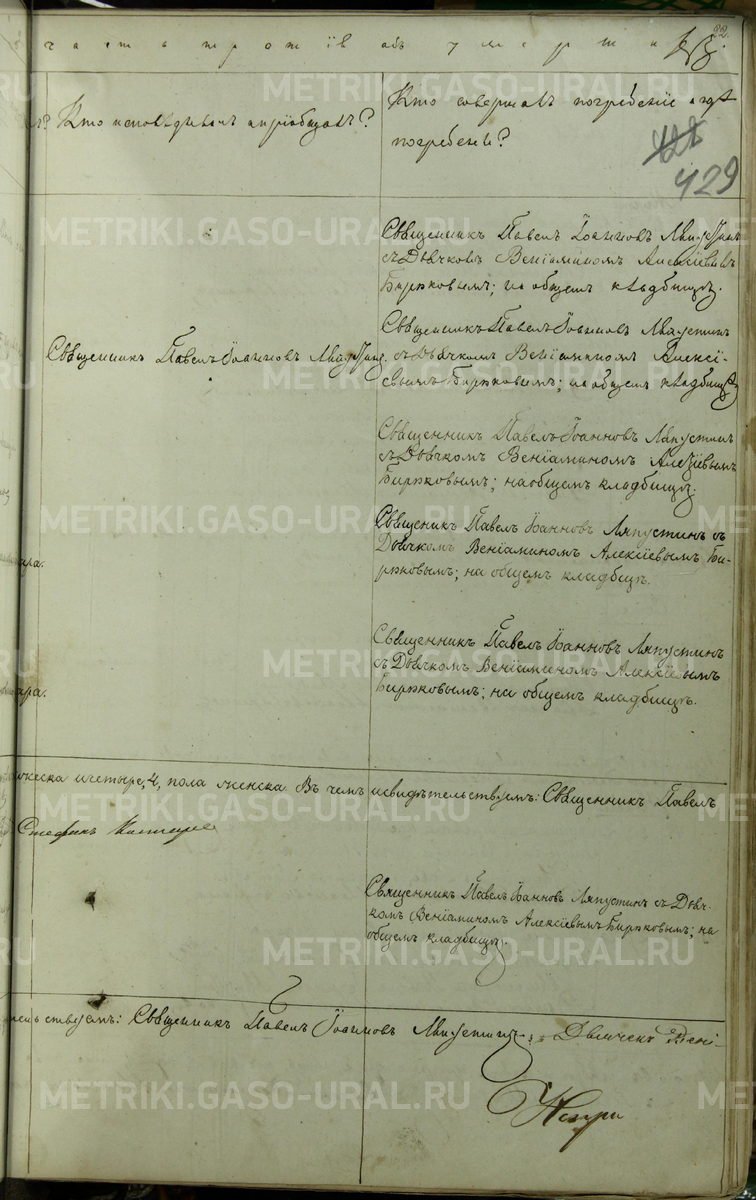 часть третія объ умерши
22.
Кто исповѣдывалъ и пріобщалъ?
Кто совершалъ погребеніе и гдѣ
погребены?
429
Священникъ Павелъ Іоанновъ Ляпустинъ
съ Дьячкомъ Веніаминомъ Алексіевымъ
Бирюковымъ; на общемъ кладбищѣ.
Священникъ Павелъ Іоанновъ Ляпустинъ
Священникъ Павелъ Іоанновъ Ляпустинъ
съ Дьячкомъ Веніаминомъ Алексі-
евымъ Бирюковымъ; на общемъ кладбищѣ
Священникъ Павелъ Іоанновъ Ляпустинъ
съ Дьячкомъ Веніаминомъ Алексіевымъ
Бирюковымъ; на общемъ кладбищѣ.
Священникъ Павелъ Іоанновъ Ляпустинъ съ
Дьячкомъ Веніаминомъ Алексіевымъ Би-
рюковымъ; на общемъ кладбищѣ.
Священникъ Павелъ Іоанновъ Ляпустинъ
съ Дьячкомъ Веніаминомъ Алексіевымъ
Бирюковымъ; на общемъ кладбищѣ.
и четыре, 4, пола женска. Въ чемъ и свидѣтельствуемъ: Священникъ Павелъ
Священникъ Павелъ Іоанновъ Ляпустинъ съ Дьяч-
комъ Веніаминомъ Алексіевымъ Бирюковымъ; на
общемъ кладбищѣ.
тельствуемъ: Священникъ Павелъ Іоанновъ Ляпустинъ Дьячекъ Вені-
METRIKI.GASO-URAL.RU